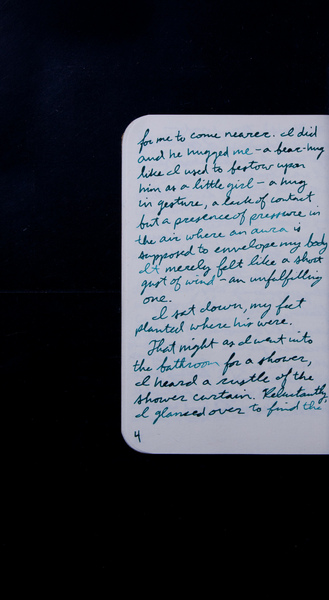 for me to come nearer. I did
and he hugged me – a bear-hug
like I used to bestow upon
him as a little girl – a hug
in gesture, a lack of contact
but a presence of pressure in
the air where an aura is
supposed to envelope my body
It merely felt like a short
gust of wind – an unfulfilling
one.
I sat down, my feet
planted where his were.
That night as I went into
the bathroom for a shower,
I heard a rustle of the
shower curtain. Reluctantly,
I glanced over to find the
4